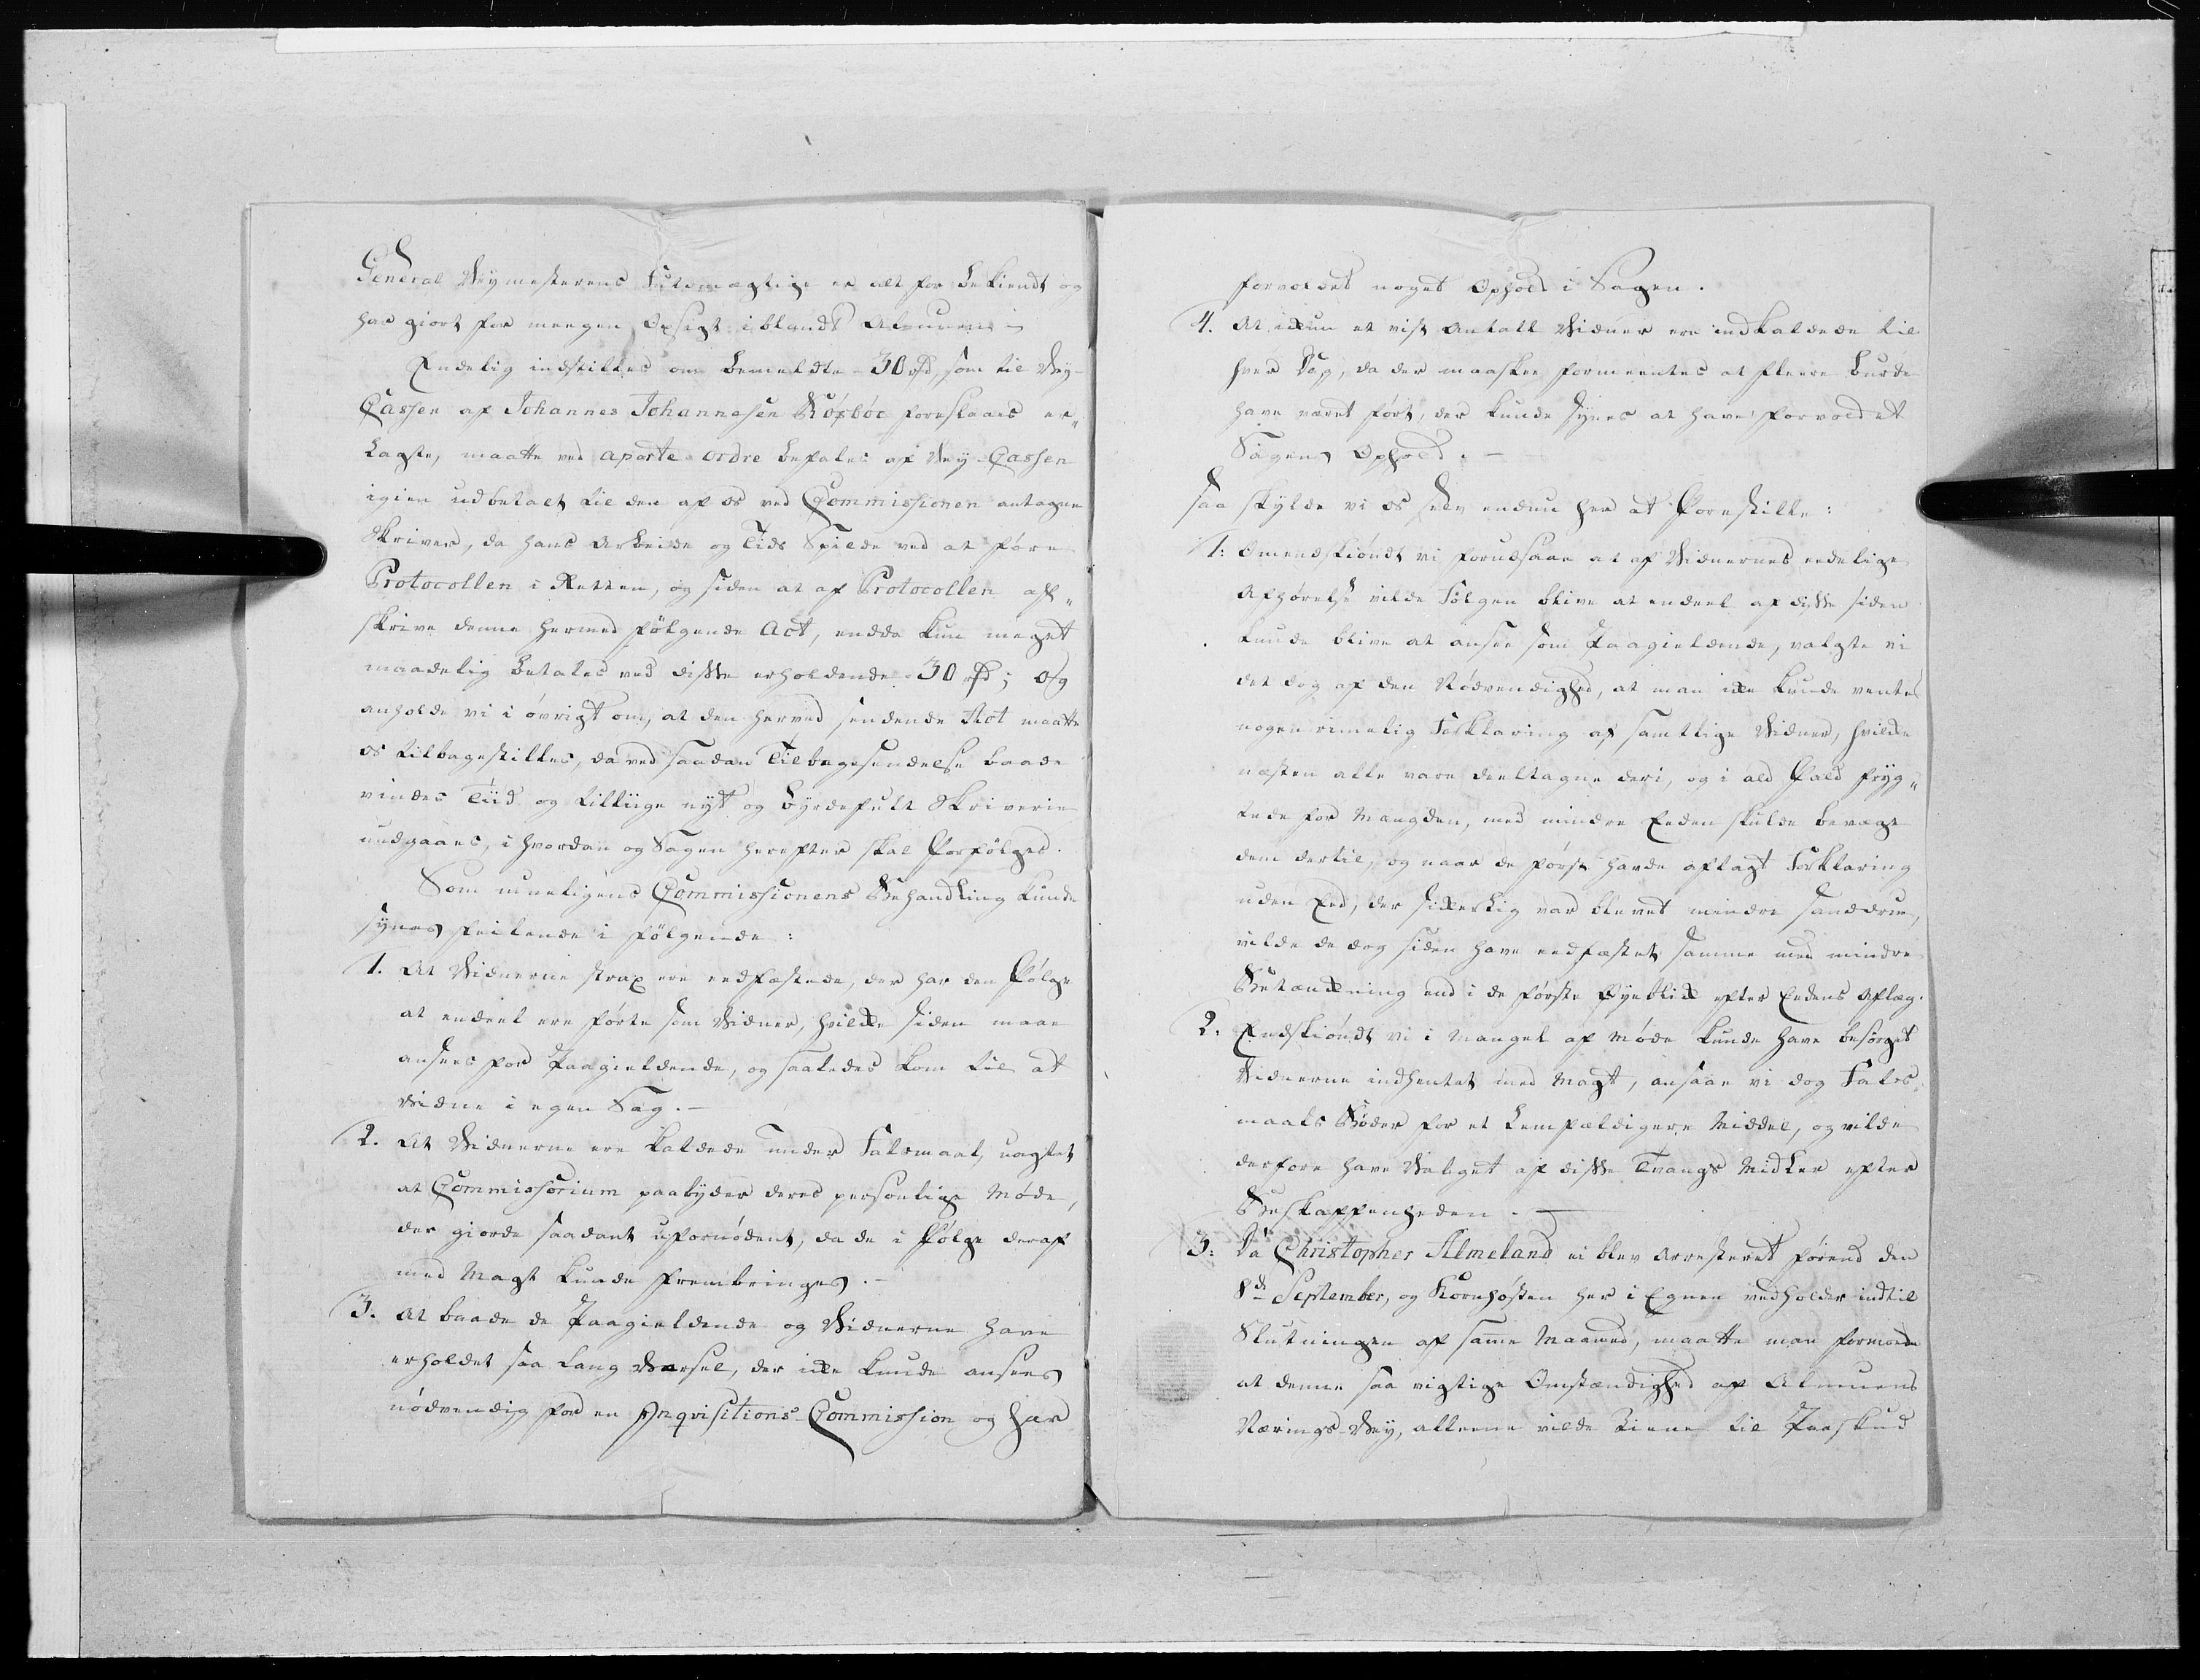 General Veymesterens Fuldmægtige er alt for bekiendt og
har giort for megen Opsigt iblandt Almuen
Endelig indstilles om bemeldte 30 rd, som til Vey-
Cassen af Johannes Johannesen foreslaaes er-
lagte, maatte ved aparte ordre befales af Vey-Cassen
igien udbetalt til den af os ved Commissionen antagne
Skriver, da hans Arbeide og Tids Spilde ved at føre
Protocollen i Retten, og siden at af Protocollen aff-
skrive denne hermed følgende Act, endda kun meget
maadelig betales ved disse erholdende 30 rd; og
anholde vi i øvrigt om, at den herved sendende Act maatte
os tilbagestilles, da ved saadan Tilbagesendelse baade
vindes Tiid og tilliige nyt og byrdefult Skriverie
undgaaes, i hvordan og Sagen herefter skal forfølges.
Som mueligens Commissionens Behandling kunde
synes feilende i følgende:
1. At Vidnerne strax ere eedfæstede, der har den Følge
at endeel ere førte som Vidner, hvilke siden maae
ansees for Paagieldende, og saaledes kom til at
vidne i egen Sag. -
2. At Vidnerne ere kaldede under Falsmaal, uagtet
at Commissorium paabyder deres personlige Møde,
der giorde saadant ufornødent, da de i Følge deraf
med Magt kunde frembringes. -
3. At baade de Paagieldende og Vidnerne have
erholdet saa lang Varsel, der ikke kunde ansees
nødvendig for en Inqvisitions-Commission og har
forvoldet noget Ophold i Sagen.
4. At ikkun et vist Antall Vidner ere indkaldede til
hver Dag, da der maaskee formeentes at fleere burde
have været ført, der kunde synes at have forvoldet
Sagens Ophold. -
saa skylde vi os selv endnu her at forestille:
1: Omendskiøndt vi forudsaae at af Vidnernes eedelige
Afhørelse vilde Følgen blive at endeel af disse siden
kunde blive at ansee som Paagieldende, valgte vi
det dog af den Nødvendighed, at man ikke kunde vente
nogen rimelig Forklaring af samtlige Vidner, hvilke
næsten alle vare deeltagne deri, og i ald Fald fryg-
tede for Mængden, med mindre Eeden skulde bevæge
dem dertil, og naar de først havde aflagt Forklaring
uden Eed, der sikkerlig var blevet mindre sanddrue,
vilde de dog siden have eedfæstet samme med mindre
Betænkning end i de første Øyeblik efter Eedens Aflæg.
2. Endskiøndt vi i Mangel af Møde kunde have besørget
Vidnerne indhentet med Magt, ansaae vi dog Fals-
maals Bøder for et lempeldigere Middel, og vilde
derfore have Valget af disse Tvangs Midler efter
Beskaffenheden. -
3: Da Christopher Almeland ei blev arresteret førend den
8de September, og Kornhøsten her i Egnen vedholder indtil
Slutningen af samme Maaned, maatte man formode
at denne saa vigtige Omstændighed af Almuens
Nærings-Vey, alleene vilde tiene til Paaskud